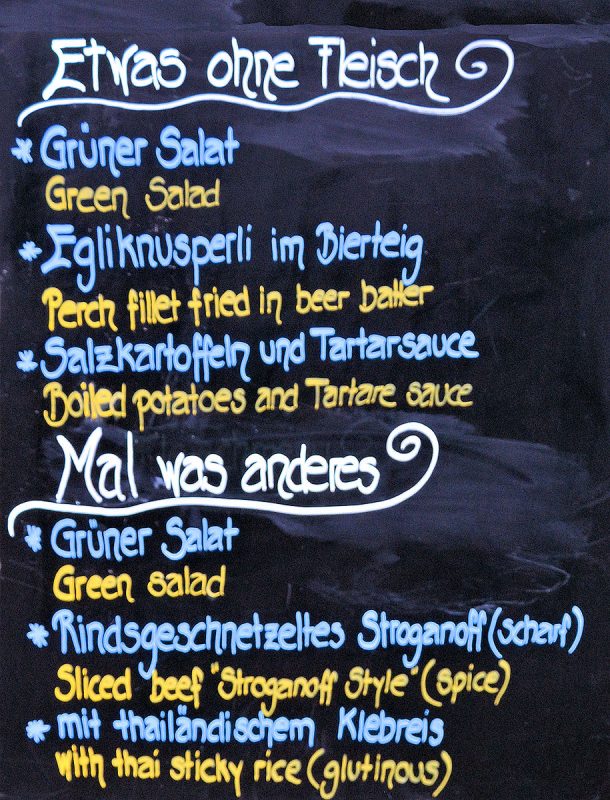 Etwas ohne Fleisch
* Grüner Salat
Green Salad
* Egliknusperli im Bierteig
Perch fillet fried in beer batter
* Salzkartoffeln und Tartarsauce
Boiled potatoes and Tartare sauce
Mal was anderes
* Grüner Salat
Green salad
* Rindsgeschnetzeltes Stroganoff (scharf)
Sliced beef "Stroganoff Style" (spice)
* mit thailändischem Klebreis
with thai sticky rice (glutinous)